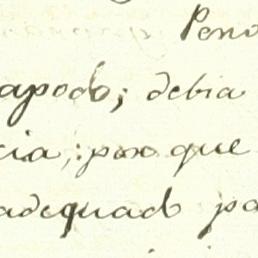 Peno
apodo; debia
cia; porque
adequado pa